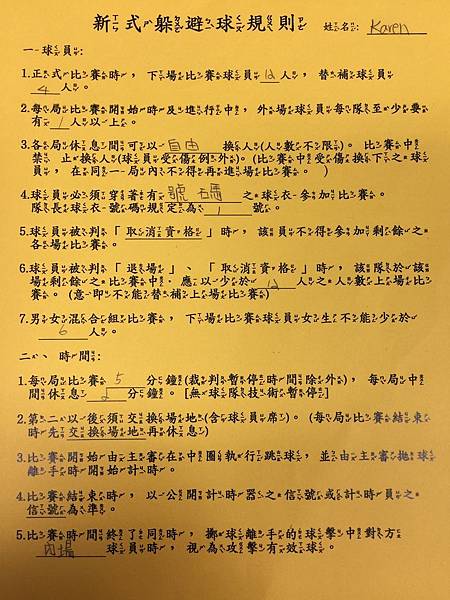 新式躲避球規則 姓名: Karen
一、球員:
1.正式比賽時，下場比賽球員12人，替補球員
4人。
2.每局比賽開始時及進行中，外場球員每隊至少要
有1人以上。
3.各局休息間可以自由換人(人數不限)。比賽中
禁止換人(球員受傷例外)。(比賽中受傷換下之球
員，在同一局內不得再進場比賽。)
4.球員必須穿著有號碼之球衣參加比賽。
隊長球衣號碼規定為1號。
5.球員被判「取消資格」時，該員不得參加剩餘之
各場比賽。
6.球員被判「退場」、「取消資格」時，該隊於該
場剩餘之比賽中，應以少於12人之人數上場比
賽。(意即不能替補上場比賽)
7.男女混合組比賽，下場比賽球員女生不能少於
6人。
二、時間:
1.每局比賽5分鐘(裁判暫停時間除外)，每局中
間休息2分鐘。[無球隊技術暫停]
2.第二以後須交換場地(含球員席)。(每局比賽結束
時先交換場地再休息)
3.比賽開始由主審在中圈執行跳球，並由主審拋球
離手時開始計時。
4.比賽結束時，以公開計時器之信號或計時員之
信號為準。
5.比賽時間終了同時，擲球離手的球擊中對方
內場球員時，視為攻擊有效球。